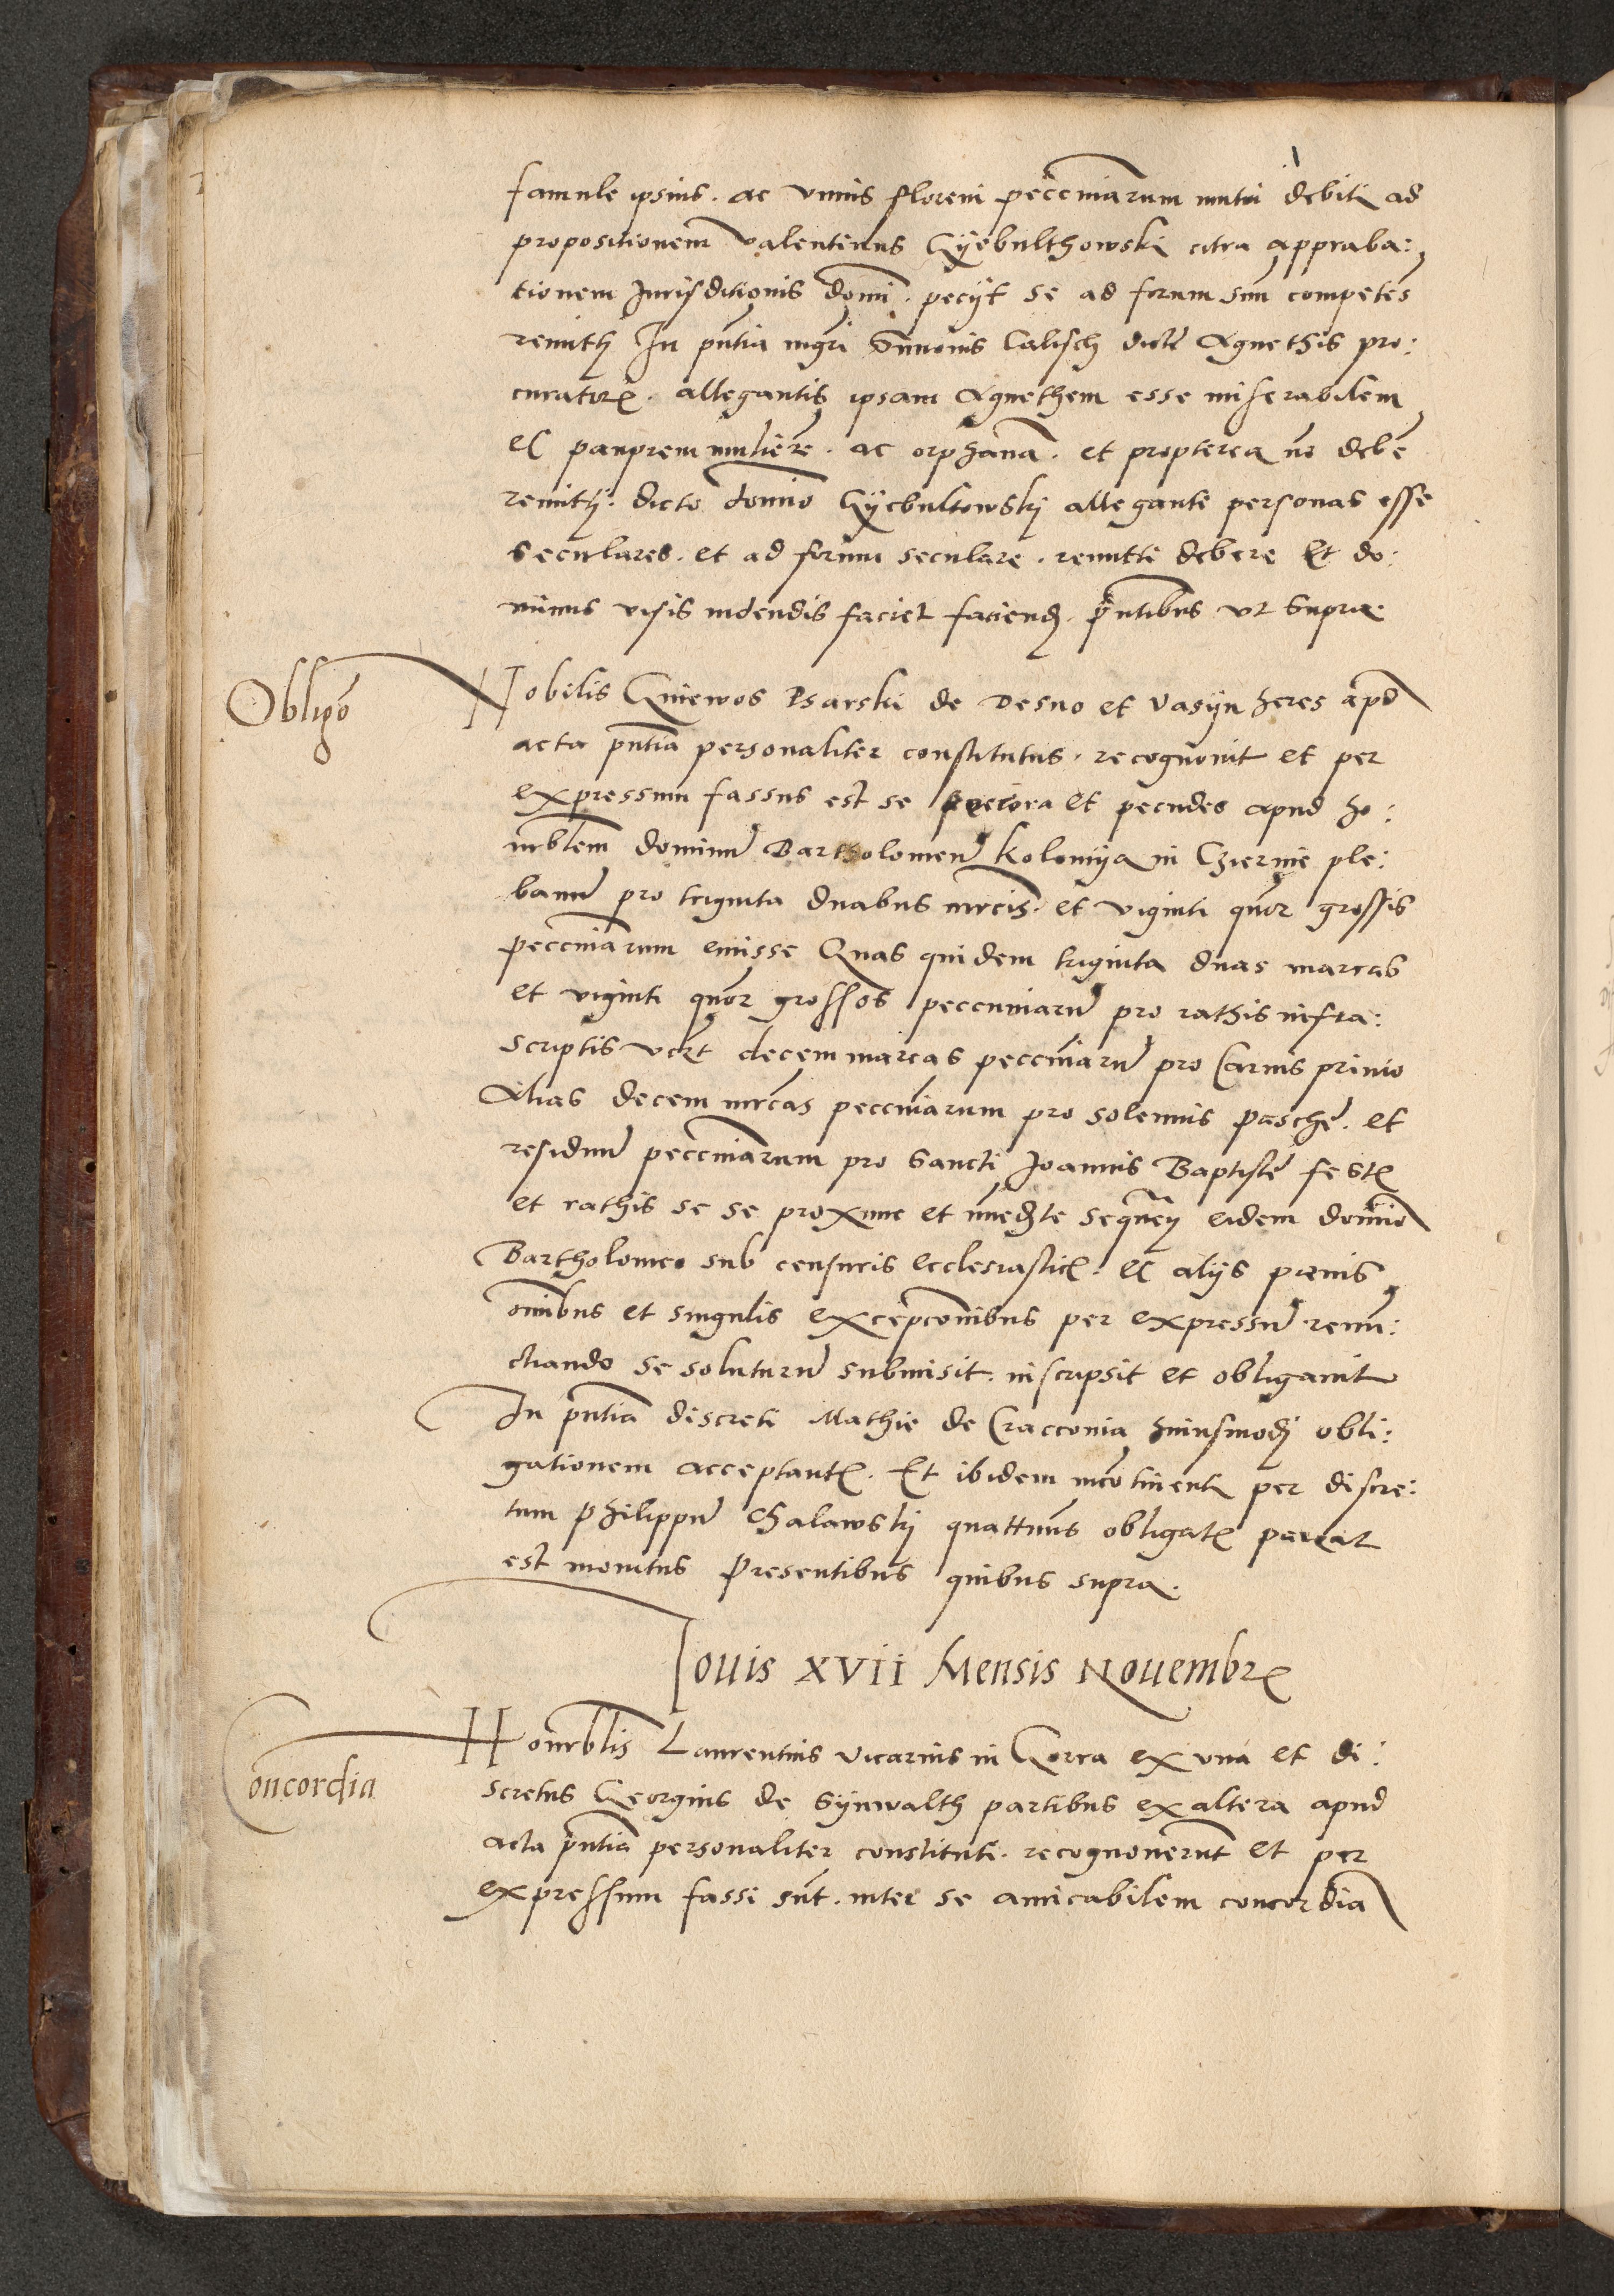 famule ipsius. ac vnius floreni pecc̄niarum mutui debiti ad
propositionem Valentinus Gÿebulthowski citra appraba:
tionem Jurisditionis domī. pecÿt se ad forum suū competēs
remitti In pn̄tia mgrī Simonis Calisch dicte Agnethis pro:
curatoris. allegantis ipsam Agnethem esse miserabilem
et pauprem muliērē. ac orphanā. et propterea nō debē
remitti. dicto domīo Gÿebultowskÿ allegante personas esse
seculares. et ad forum seculare. remitti debere Et do:
minus visis videndis faciet faciend. pn̄tibus vt supra.
Obligō
Nobilis Gniewos Psarski de Desno et Vasÿn heres apd̄
acta pn̄tia personaliter constitutus. recognouit et per
expressum fassus est se pecora et pecudes apud ho:
nrb̄lem dominū Bartholomeū Kolomÿa in Czernie ple:
banū pro triginta duabus mrc̄is. et viginti quōr grossis
pecc̄niarum emisse Quas quidem triginta duas marcas
et viginti quōr grossos peccuniarū pro rathis infra:
scriptis vcƶt decem marcas pecc̄niarū pro Carnis priuio
Alias decem mrc̄as pecc̄niarum pro solemnis pasche. et
residuū pecc̄niarum pro Sancti Joannis Baptiste festis
et rathis se se proxime et im̄ed̄te seqn̄ eidem domīo
Bartholomeo sub censuris ecclesiasticis. et alÿs pœnis
om̄ibus et singulis excepc̄onibus per expressū renū:
ctiando se soluturū submisit. inscripsit et obligauit
In pn̄tia discreti Mathie de Cracconia huiusmodj obli:
gationem acceptantis. Et ibidem incōtinenti per discre:
tum Philippū Chalawskj quattin̄s obligatis pareat
est monitus Presentibus quibus supra.
Iouis XVII Mensis Nouembris
Concordia
Honrb̄lis Laurentius vicarius in Gorra ex vna et di:
scretus Georgius de Sÿnwalth partibus ex altera apud
acta pn̄tia personaliter constituti. recognouerūt et per
expressum fassi sūt. inter se amicabilem concordiā